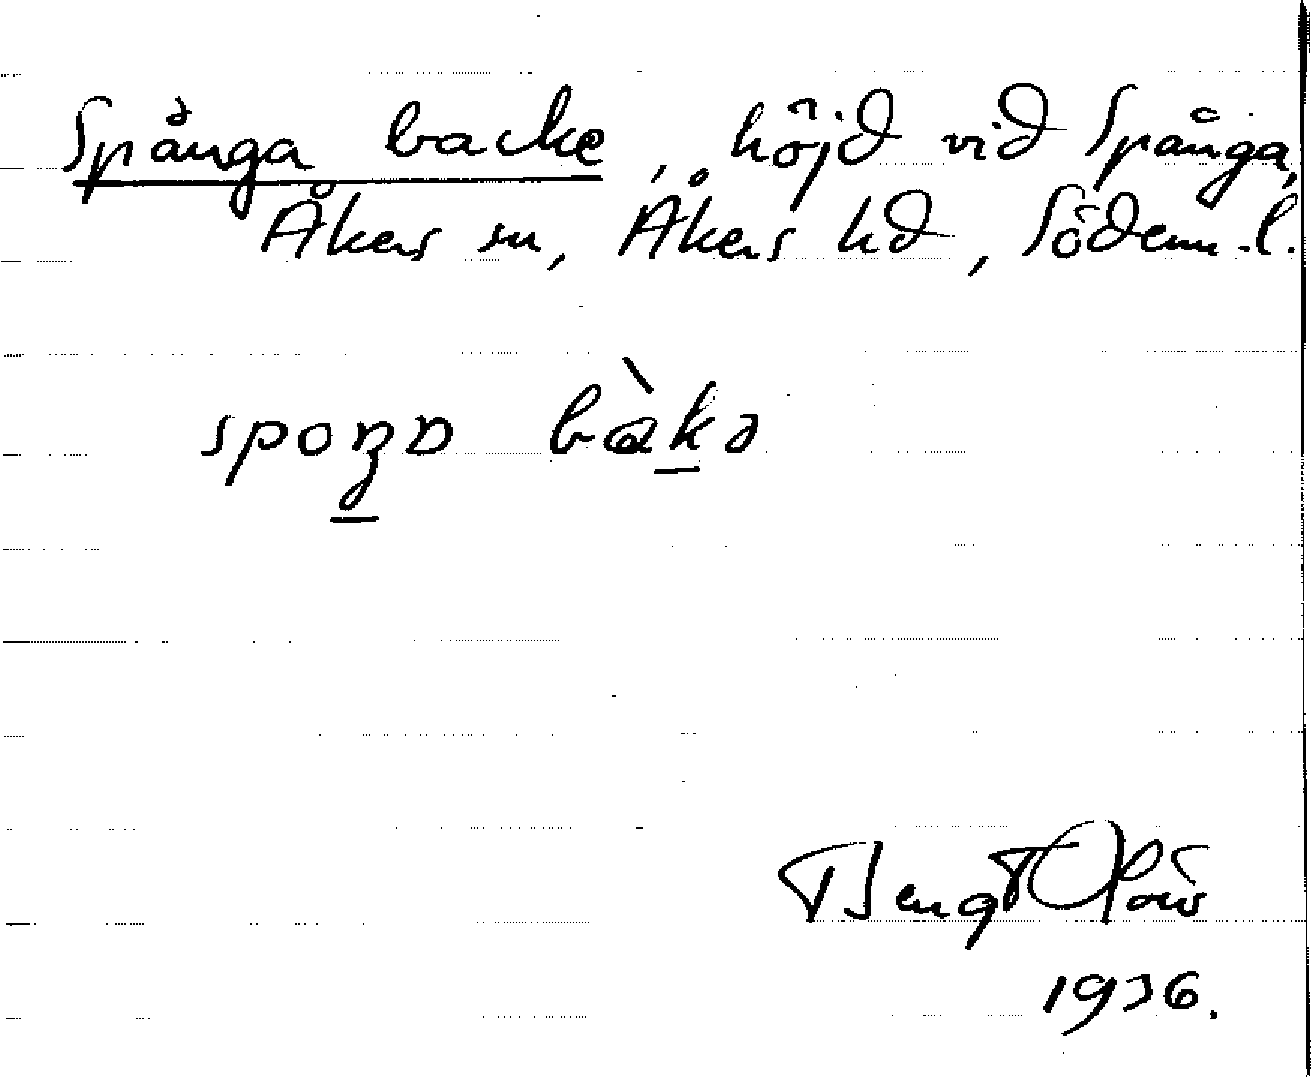 Spånga backe, höjd vid Spånga,
Åkers sn, Åkers hd, Söderm. l.
spoŋɒ bàkə
1936.